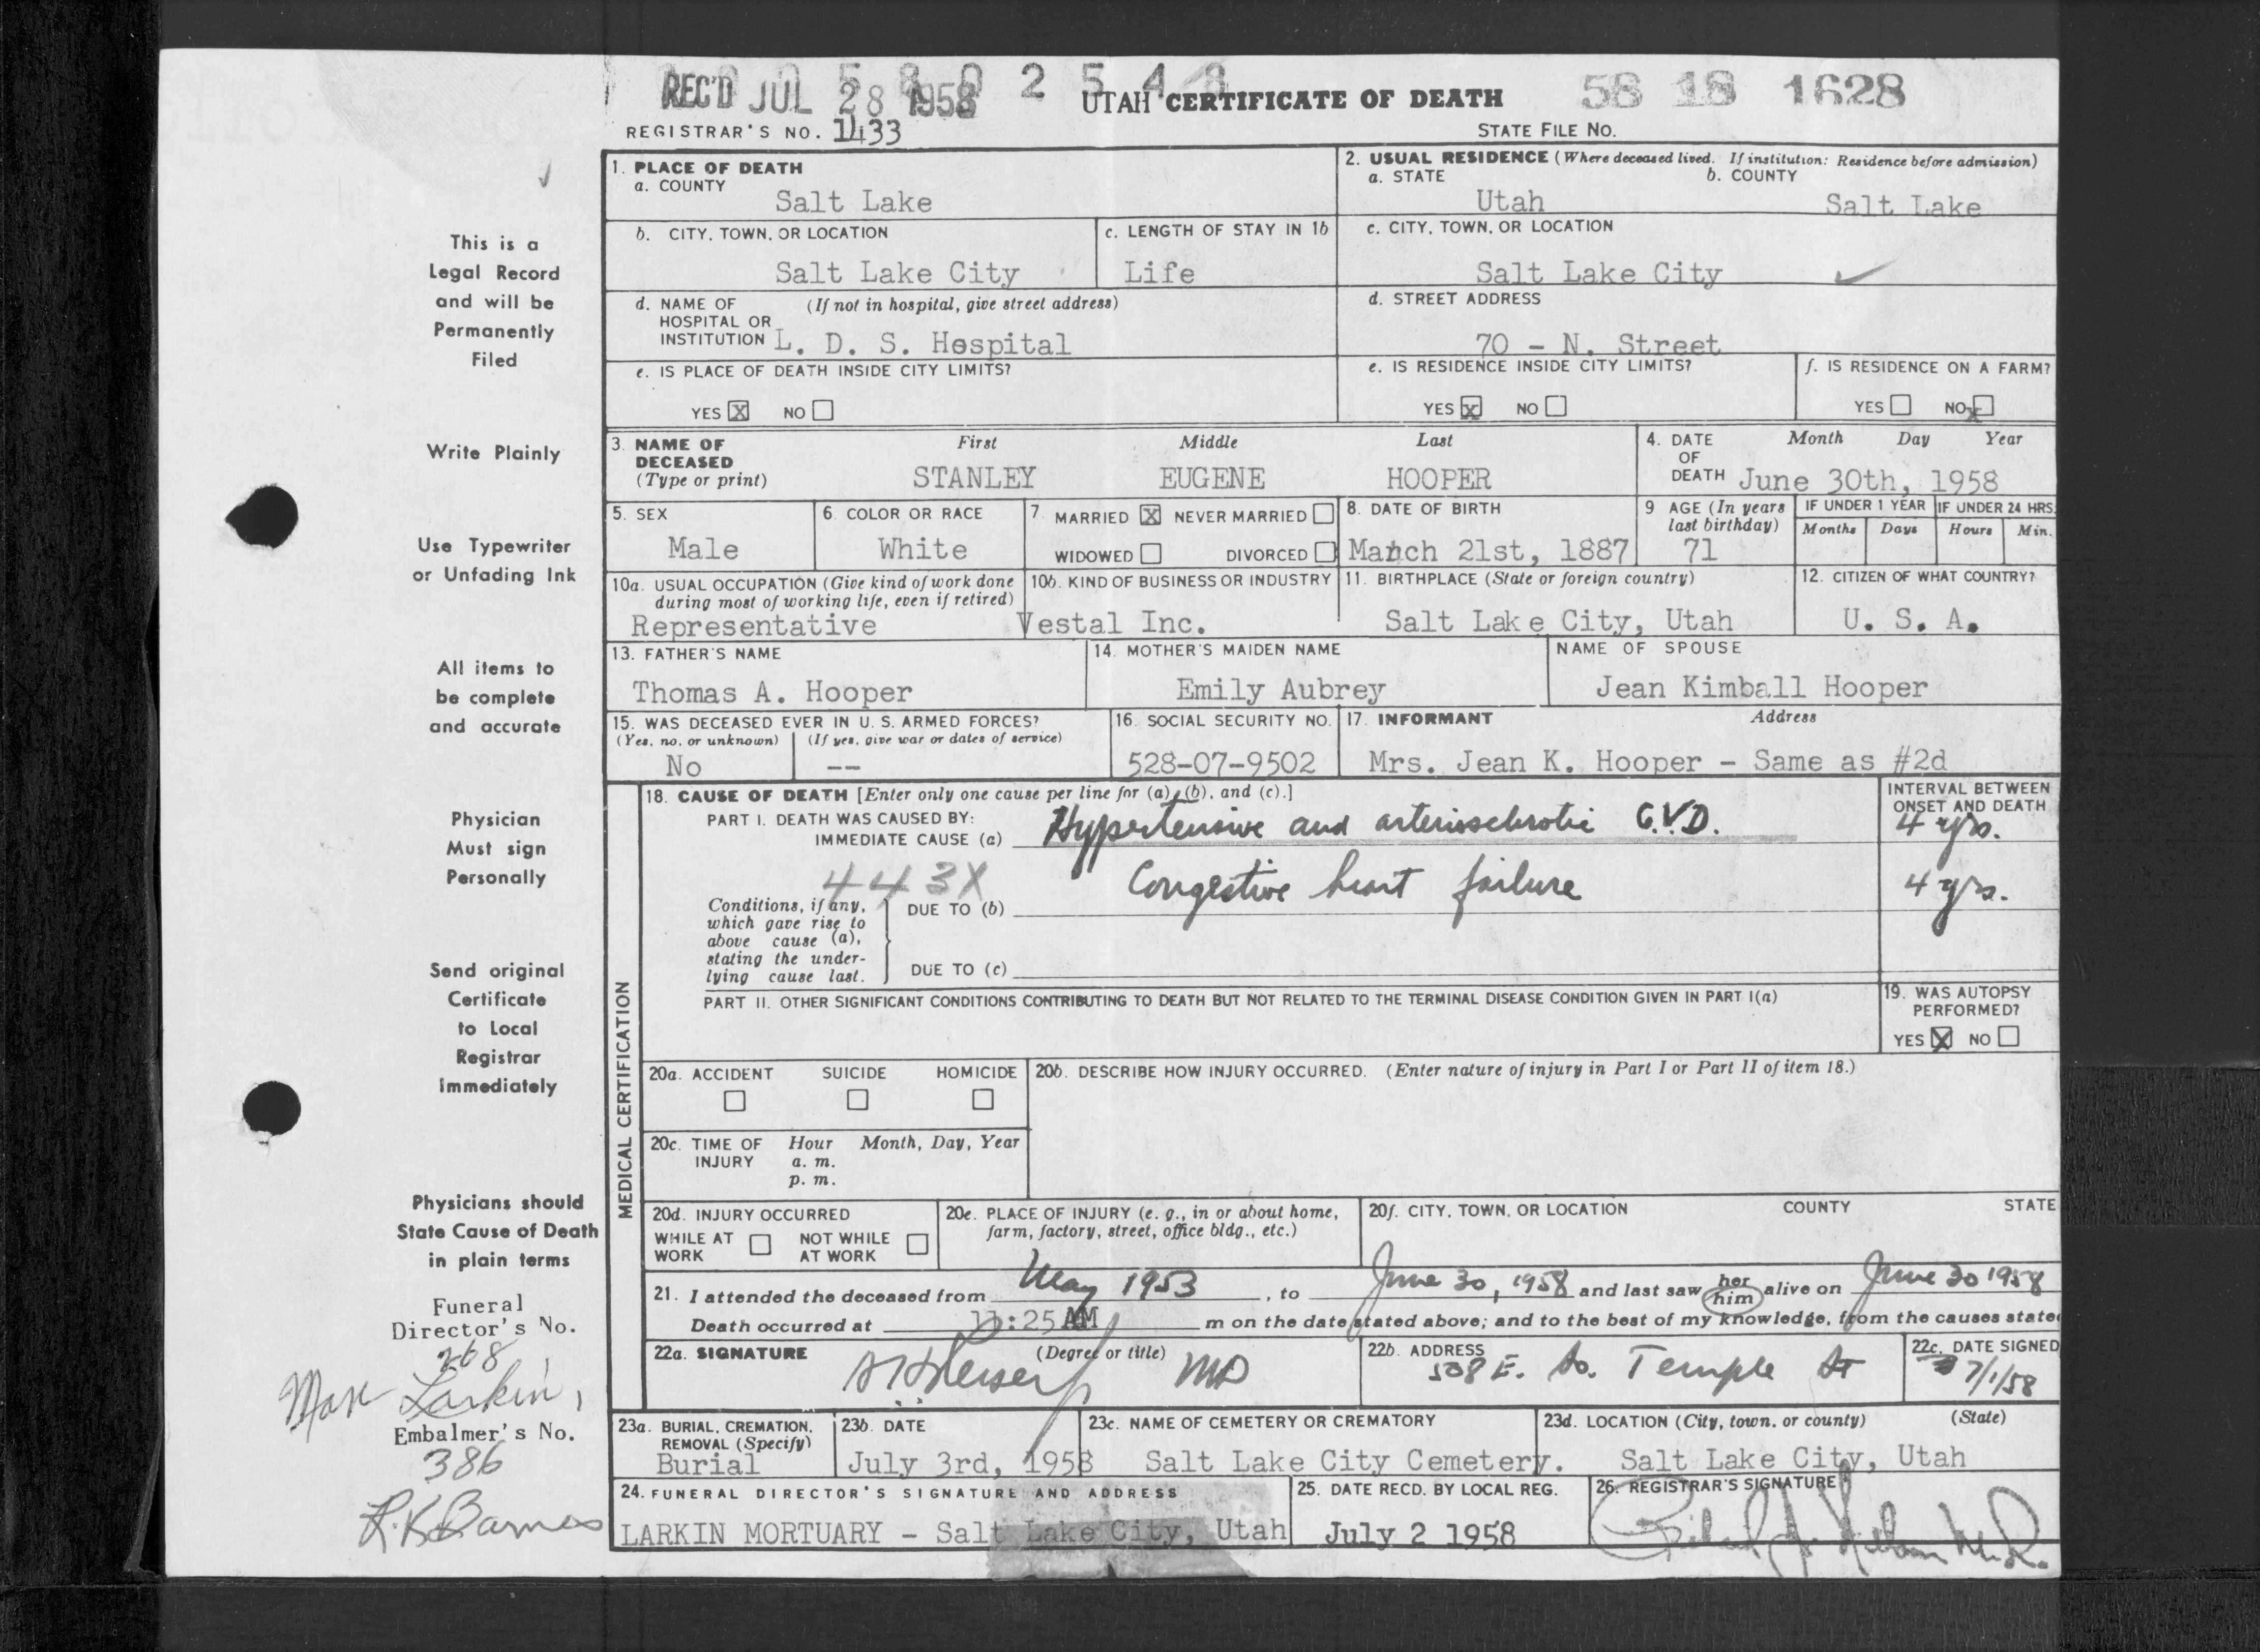 REC'D JUL 28 1958
UTAH CERTIFICATE OF DEATH
58 18 1628
REGISTRAR'S NO. 1433
STATE FILE NO.
This is a
Legal Record
and will be
Permanently
Filed
Write Plainly
Use Typewriter
or Unfading Ink
All items to
be complete
and accurate
Physician
Must sign
Personally
Send original
Certificate
to Local
Registrar
immediately
Physicians should
State Cause of Death
in plain terms
Funeral
Director's No.
268
Max Larkin,
Embalmer's No.
386
R.K. Barnes
1. PLACE OF DEATH
a. COUNTY
Salt Lake
2. USUAL RESIDENCE (Where deceased lived. If institution: Residence before admission)
a. STATE b. COUNTY
Utah Salt Lake
b. CITY, TOWN, OR LOCATION
Salt Lake City
c. LENGTH OF STAY IN 1b
Life
c. CITY, TOWN, OR LOCATION
Salt Lake City
d. NAME OF (If not in hospital, give street address)
HOSPITAL OR
INSTITUTION L. D. S. Hospital
d. STREET ADDRESS
70 - N. Street
e. IS PLACE OF DEATH INSIDE CITY LIMITS?
YES X NO
e. IS RESIDENCE INSIDE CITY LIMITS?
YES X NO
f. IS RESIDENCE ON A FARM?
YES NO X
3. NAME OF
DECEASED
(Type or print)
First Middle Last
STANLEY EUGENE HOOPER
4. DATE Month Day Year
OF
DEATH June 30th, 1958
5. SEX
Male
6. COLOR OR RACE
White
7. MARRIED X NEVER MARRIED
WIDOWED DIVORCED
8. DATE OF BIRTH
March 21st, 1887
9 AGE (In years
last birthday)
71
IF UNDER 1 YEAR
Months Days
IF UNDER 24 HRS.
Hours Min.
10a. USUAL OCCUPATION (Give kind of work done
during most of working life, even if retired)
Representative
10b. KIND OF BUSINESS OR INDUSTRY
Vestal Inc.
11. BIRTHPLACE (State or foreign country)
Salt Lake City, Utah
12. CITIZEN OF WHAT COUNTRY?
U. S. A.
13. FATHER'S NAME
Thomas A. Hooper
14. MOTHER'S MAIDEN NAME
Emily Aubrey
NAME OF SPOUSE
Jean Kimball Hooper
15. WAS DECEASED EVER IN U. S. ARMED FORCES?
(Yes, no, or unknown) (If yes, give war or dates of service)
No --
16. SOCIAL SECURITY NO.
528-07-9502
17. INFORMANT Address
Mrs. Jean K. Hooper - Same as #2d
MEDICAL CERTIFICATION
18. CAUSE OF DEATH [Enter only one cause per line for (a), (b), and (c).]
PART I. DEATH WAS CAUSED BY:
IMMEDIATE CAUSE (a) Hypertensive and arteriosclerotic C.V.D.
INTERVAL BETWEEN
ONSET AND DEATH
4 yrs.
443X
Conditions, if any,
which gave rise to
above cause (a),
stating the under-
lying cause last.
DUE TO (b) Congestive heart failure 4 yrs.
DUE TO (c)
PART II. OTHER SIGNIFICANT CONDITIONS CONTRIBUTING TO DEATH BUT NOT RELATED TO THE TERMINAL DISEASE CONDITION GIVEN IN PART I(a)
19. WAS AUTOPSY
PERFORMED?
YES X NO
20a. ACCIDENT SUICIDE HOMICIDE
20b. DESCRIBE HOW INJURY OCCURRED. (Enter nature of injury in Part I or Part II of item 18.)
20c. TIME OF Hour Month, Day, Year
INJURY a. m.
p. m.
20d. INJURY OCCURRED
WHILE AT NOT WHILE
WORK AT WORK
20e. PLACE OF INJURY (e. g., in or about home,
farm, factory, street, office bldg., etc.)
20f. CITY, TOWN, OR LOCATION COUNTY STATE
21. I attended the deceased from May 1953, to June 30, 1958 and last saw her him alive on June 30 1958
Death occurred at 11:25 AM m on the date stated above; and to the best of my knowledge, from the causes state
22a. SIGNATURE (Degree or title)
MD
22b. ADDRESS
508 E. So. Temple St
22c. DATE SIGNED
7/1/58
23a. BURIAL, CREMATION,
REMOVAL (Specify)
Burial
23b. DATE
July 3rd, 1958
23c. NAME OF CEMETERY OR CREMATORY
Salt Lake City Cemetery.
23d. LOCATION (City, town, or county) (State)
Salt Lake City, Utah
24. FUNERAL DIRECTOR'S SIGNATURE AND ADDRESS
LARKIN MORTUARY - Salt Lake City, Utah
25. DATE RECD. BY LOCAL REG.
July 2 1958
26. REGISTRAR'S SIGNATURE